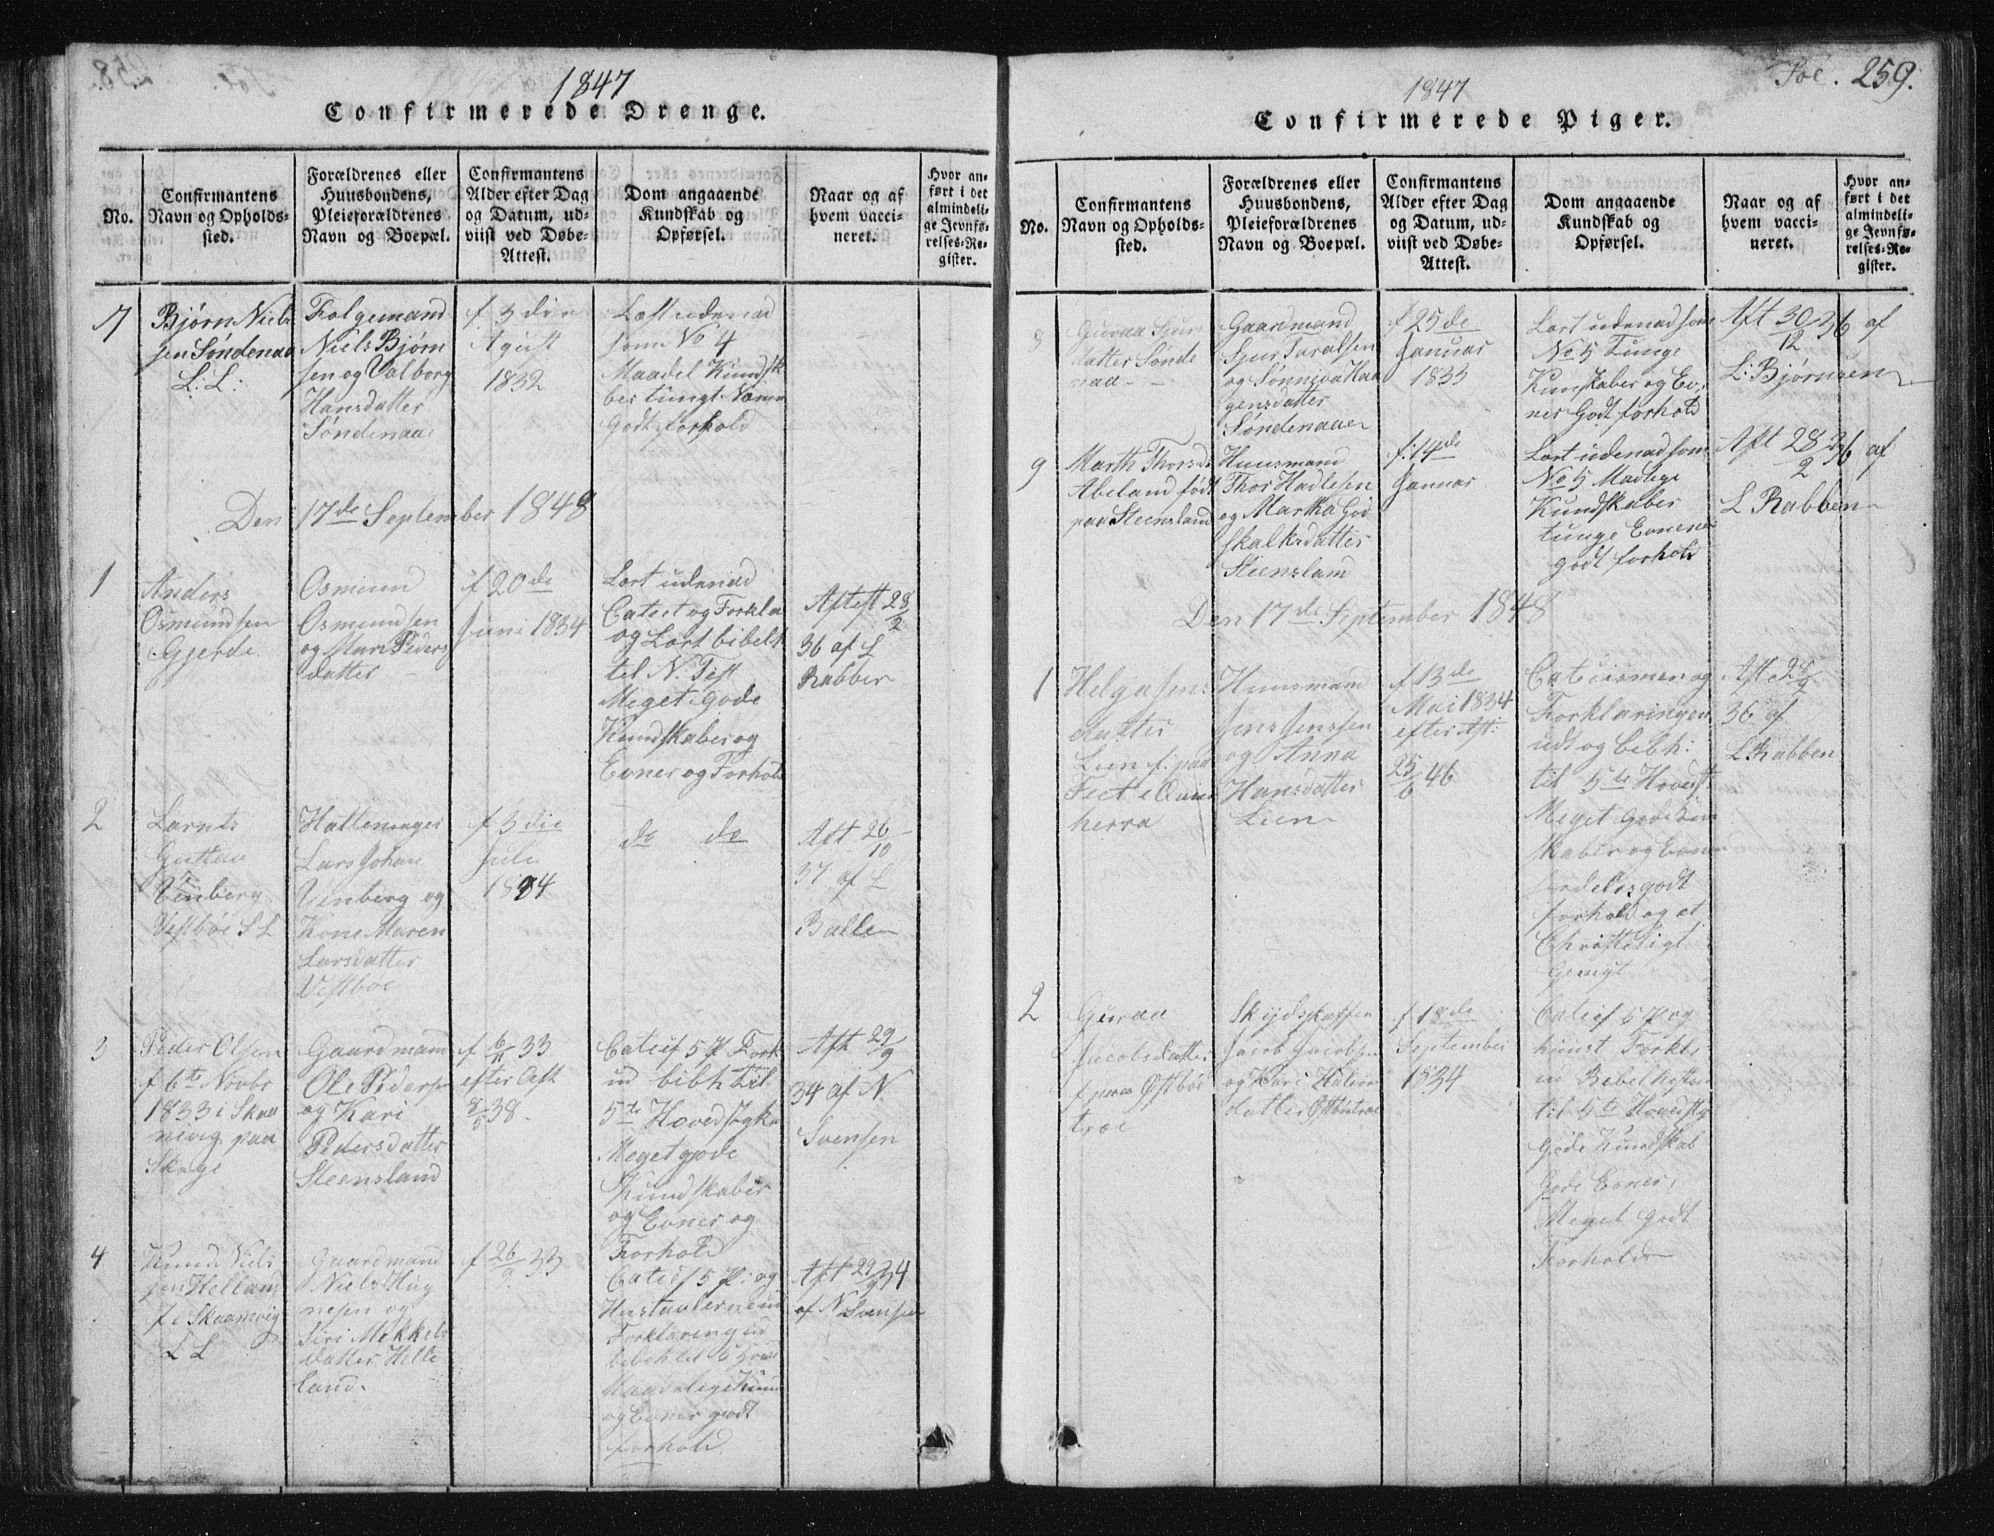 1847
Confirmerede Drenge.
No.
Confirmantens
Navn og Opholds-
sted.
Forældrenes eller
Huusbondens,
Pleieforældrenes
Navn og Boepæl.
Confirmantens
Alder efter Dag
og Datum, ud-
viist ved Døbe-
Attest.
Dom angaaende
Kundskab og
Opførsel.
Naar og af
hvem vacci-
neret.
Hvor an-
ført i det
almindeli-
ge Jevnfø-
relses-Re-
gister.
7
Bjørn Niel-
sen Søndenaa
L: L:
Folgemand
Niels Bjørn
sen og Valborg
Hansdatter
Søndenaa
f. 3 die
Agust
1832
Læst udenad
som No 4
Maadel Kundsk
ber tungt Nemm
Godt forhold
Den 17de September 1848
1
Anders
Osmundsen
Gjerde
Osmun
Osmundsen
og Mari Peders
datter
f 20de
Juni 1834
Lært udenad
Catect og Forkla
og Lært bibelh
til N. Test
Meget Gode
Kundskaber og
Evner og Forhold
Aftest 28/2
36 af L
Rabben
2
Larnts
Gustav
Venberg
Vestbøe S L
Hattemager
Lars Johan
Venberg og
Kone Maren
Larsdatter
Vestboe
f. 3 die
Juli
1834
do do
Aft 26/10
37 af L
Balle
3
Peder Olsen
f 6te Novbr
1833 i Skaa
nevig paa
Gaardmand
Ole Peders
og Kari
Pedersdatter
Steensland
f 6/11 33
efter Aft
8/5 38
Cateif 5 P. Fork
ud bibh til
5te Hovedstyk
Meget gode
Kundskaber
og Evner og
Forhold
Aft 29/9
34 af N.
Svensen
4
Knud Niels
sen Helland
f i Skaanevig
L L
Gaardmand
Niels Hag
nesen og
Siri Mikkels
datter Helle
land
f 26/9 33
Cateif 5 P: og
Hustavlerne ud
Forklaring ud
bibh til 5 Hov
Maadelige Kun
og Evner godt
forhold
Aft 29/9 34
af N Svensen
Foe. 259.
1847
Confirmerede Piger.
No.
Confirmantens
Navn og Opholds-
sted.
Forældrenes eller
Huusbondens,
Pleieforældrenes
Navn og Boepæl.
Confirmantens
Alder efter Dag
og Datum, ud-
viist ved Døbe-
Attest.
Dom angaaende
Kundskab og
Opførsel.
Naar og af
hvem vacci-
neret.
Hvor an-
ført i det
almindeli-
ge Jevnfø-
relses-Re-
gister.
8
Guraa Sjur
datter Sønde
naa
Gaardmand
Sjur Taralsen
og Sønneva Haa
gensdatter
Søndenaae
f 25de
Januar
1833
Lært udenad som
No 5 Tunge
Kunskaber og Ev
ner Godt forhold
Aft 30/12 36 af
L: Bjørnsen
9
Marth Thorsd
Abeland født
paa Steensland
Huusmand
Thor Hadlesen
og Martha God
skalksdatter
Steensland
f. 14de
Januar
Lært udenad som
No 5 Madlige
Kundskaber
tunge Evener
godt forhold
Aft 28/2 36 af
L Rabben
Den 17de September 1848
1
Helga Jens
datter
Lien f: paa
herra
Huusmand
Jens Jenssen
og Anna
Hansdatter
Lien
f 13de
Mai 1834
efter Aft:
25/6 46
Catecismen og
Forklaringen
udt og bibh:
til 5te Hovedst
Meget gode kun
skaber og Evner
særdeles godt
forhold og et
Christeligt
Gemyt
Aft 28/9
36 af
L Rabben
2
Guraa
Jacobsdatter
f paa Østbøe
troe
Skydsskaffer
Jacob Jacobsen
og Kari Halvor
datter Østbøtroe
f 18de
September
1834
Cateif 5 P og
hust Forkl:
ud Bibelhistori
til 5te Hovedsty
Gode Kundskab
Gode Evner,
Meget Godt
Forhold